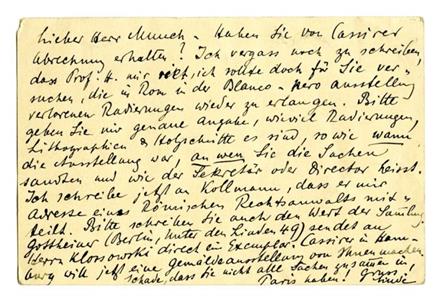 Lieber Herr Munch – Haben Sie von Cassirer
Abrechnung erhalten? Ich vergass noch zu schreiben,
dass Prof. H. mir riet, ich sollte doch für Sie ver-
suchen, die in Rom in der Bianco-Nero Ausstellung
verlorenen Radierungen wieder zu erlangen. Bitte
geben Sie mir genaue Angabe, wieviel Radierungen,
Lithographien & Holzschnitte es sind, sowie wann
die Ausstellung war, an wen Sie die Sachen
sandten und wie der Sekretär oder Director heisst.
Ich schreibe jetzt an Kollmann, dass er mir
Adresse eines Römischen Rechtsanwalts mit-
teilt. Bitte schreiben Sie auch den Wert der Samlung.
Gottheiner (Berlin, Unter den Linden 49) sendet an
Herrn Klossowski direct ein Exemplar. Cassirer in Ham-
burg will jetzt eine Gemäldeausstellung von Ihnen machen
schade, dass Sie nicht alle Sachen zusammen in
Paris haben! Gruss!
Linde